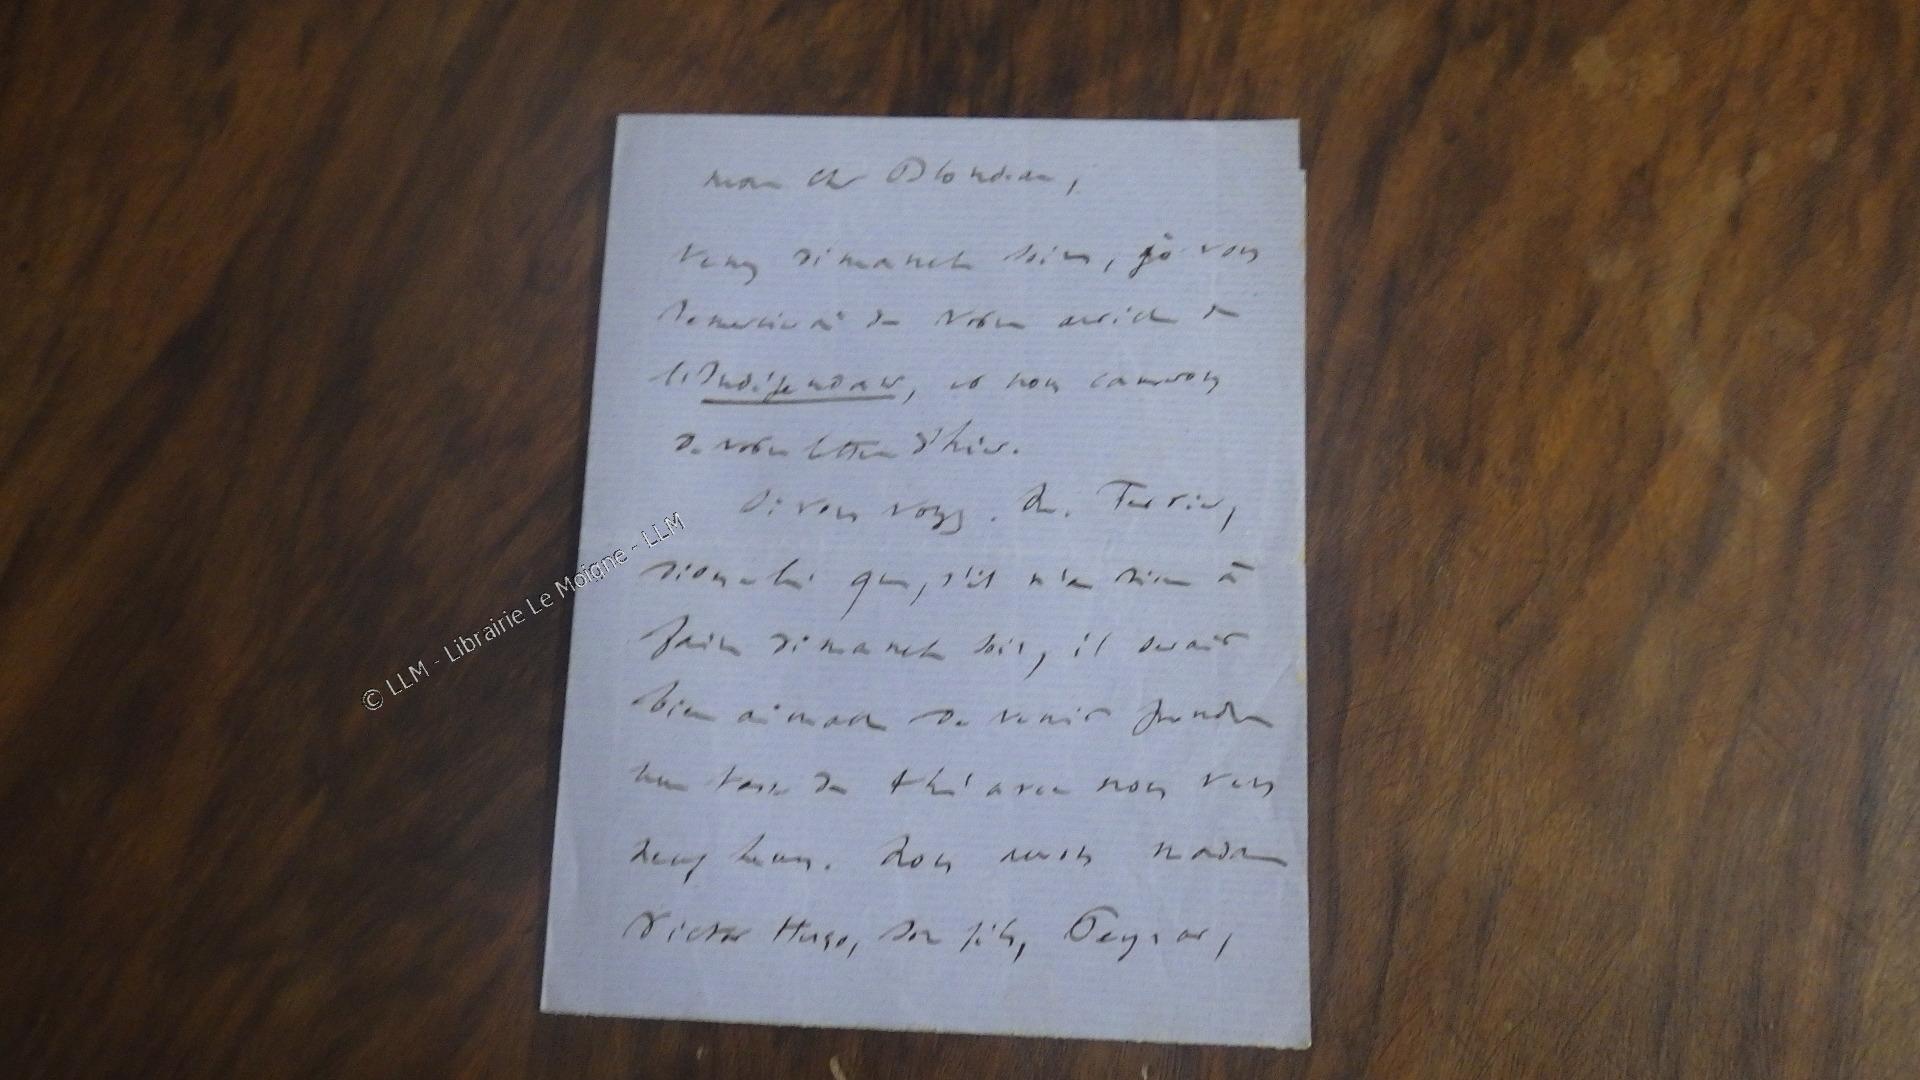 mon cher Blondeau,
Venez dimanche soir, je vous
remercierai de votre article de
l'Indépendance, et nous causerons
de votre lettre d'hier.
Si vous voyez M. Terrier,
dites-lui que, s'il n'a rien à
faire dimanche soir, il serait
bien aimable de venir prendre
une tasse de thé avec nous vers
neuf heures. Nous aurons madame
Victor Hugo, son fils, Peyrat,
© LLM - Librairie Le Moigne - LLM